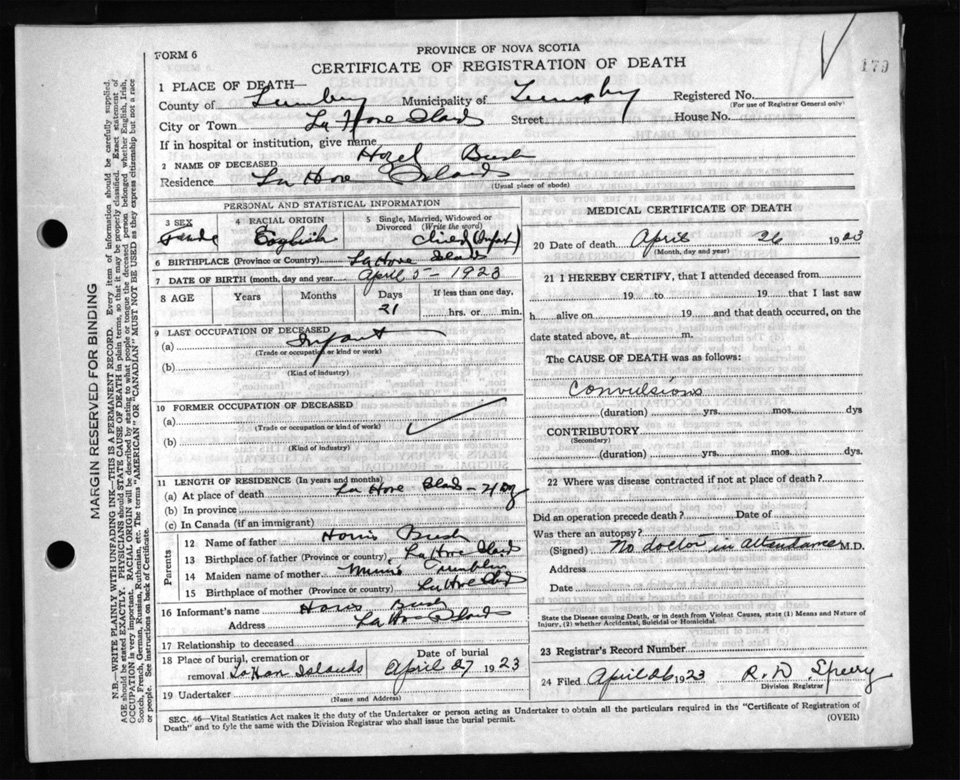 PROVINCE OF NOVA SCOTIA
FORM 6
CERTIFICATE OF REGISTRATION OF DEATH
179
1 PLACE OF DEATH—
County of Municipality of Registered No.
(For use of Registrar General only)
City or Town La Have Island Street House No.
If in hospital or institution, give name
2 NAME OF DECEASED Hazel Bush
Residence La Have Islands
(Usual place of abode)
PERSONAL AND STATISTICAL INFORMATION
3 SEX 4 RACIAL ORIGIN 5 Single, Married, Widowed or Divorced (Write the word)
Female English Child (Infant)
6 BIRTHPLACE (Province or Country) LaHave Islands
7 DATE OF BIRTH (month, day and year) April 5 - 1923
8 AGE Years Months Days If less than one day,
21 hrs. or min.
9 LAST OCCUPATION OF DECEASED
(a) Infant
(Trade or occupation or kind or work)
(b)
(Kind of industry)
10 FORMER OCCUPATION OF DECEASED
(a)
(Trade or occupation or kind of work)
(b)
(Kind of industry)
11 LENGTH OF RESIDENCE (In years and months)
(a) At place of death La Have Island -
(b) In province
(c) In Canada (if an immigrant)
Parents
12 Name of father Bush
13 Birthplace of father (Province or country) LaHave Island
14 Maiden name of mother
15 Birthplace of mother (Province or country) LaHave Island
16 Informant's name Bush
Address LaHave Island
17 Relationship to deceased
18 Place of burial, cremation or removal LaHave Islands Date of burial April 27 1923
19 Undertaker
(Name and Address)
MEDICAL CERTIFICATE OF DEATH
20 Date of death April 26 1923
(Month, day and year)
21 I HEREBY CERTIFY, that I attended deceased from
19 to 19 that I last saw
h alive on 19 and that death occurred, on the
date stated above, at m.
The CAUSE OF DEATH was as follows:
Convulsions
(duration) yrs. mos. dys
CONTRIBUTORY
(Secondary)
(duration) yrs. mos. dys.
22 Where was disease contracted if not at place of death?
Did an operation precede death? Date of
Was there an autopsy?
(Signed) No doctor in attendance M.D.
Address
Date
State the Disease causing Death, or in death from Violent Causes, state (1) Means and Nature of
Injury, (2) whether Accidental, Suicidal or Homicidal.
23 Registrar's Record Number
24 Filed April 26 1923 R. D. Sperry
Division Registrar
SEC. 46—Vital Statistics Act makes it the duty of the Undertaker or person acting as Undertaker to obtain all the particulars required in the "Certificate of Registration of
Death" and to fyle the same with the Division Registrar who shall issue the burial permit.
(OVER)
MARGIN RESERVED FOR BINDING
N.B.—WRITE PLAINLY WITH UNFADING INK—THIS IS A PERMANENT RECORD. Every item of information should be carefully supplied.
AGE should be stated EXACTLY. PHYSICIANS should STATE CAUSE OF DEATH in plain terms, so that it may be properly classified. Exact statement of
OCCUPATION is very important. RACIAL ORIGIN will be described by stating to what people or tongue the deceased person belonged whether English, Irish,
Scotch, French, German, Russian, Ruthenian, etc. The terms "AMERICAN" OR "CANADIAN" MUST NOT BE USED as they express citizenship but not a race
or people. See instructions on back of Certificate.